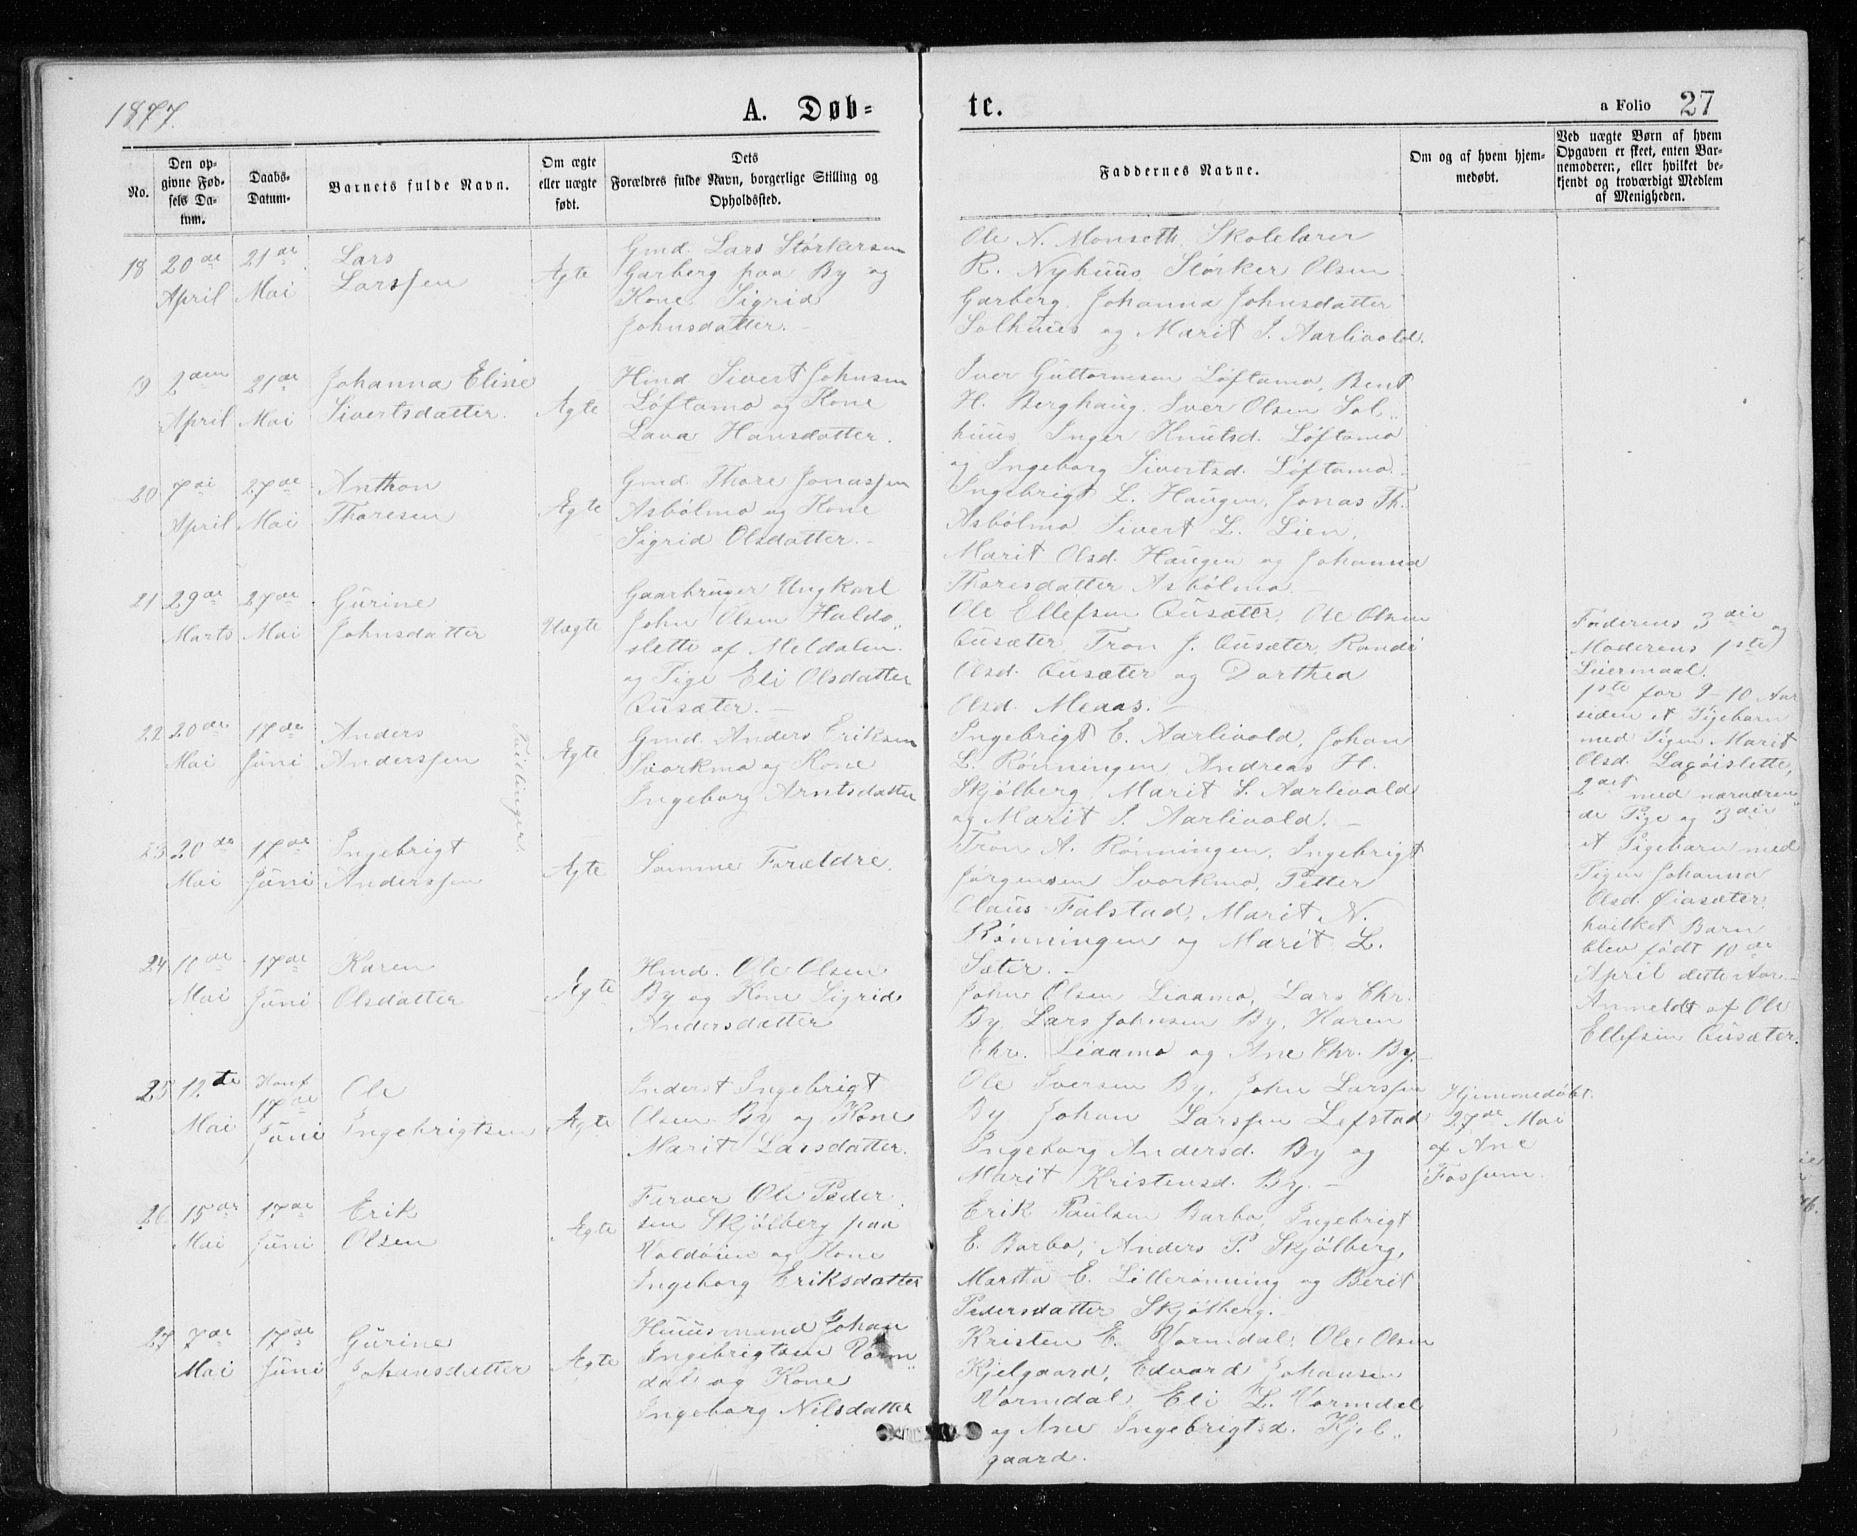 1877.
A. Døb-
te.
a Folio 27
No.
Den op-
givne Fød-
sels Da-
tum.
Daabs-
Datum.
Barnets fulde Navn.
Om ægte
eller uægte
født.
Dets
Forældres fulde Navn, borgerlige Stilling og
Opholdssted.
Faddernes Navne.
Om og af hvem hjem-
medøbt.
Ved uægte Børn af hvem
Opgaven er skeet, enten Bar-
nemoderen, eller hvilket be-
kjendt og troværdigt Medlem
af Menigheden.
18 20de April
21de Mai
Lars
Larssen
Ægte
Gmd. Lars Størkersen
Garberg paa By og
Kone Sigrid
Johnsdatter.
Ole N. Monseth, Skolelærer
R. Nyhuus, Størker Olsen
Garberg, Johanna Johnsdatter
Solhuus og Marit I. Aarlivold.
19 2den April
21de Mai
Johanna Elise
Sivertsdatter.
Ægte
Hmd Sivert Johnsen
Løftamo og Kone
Lava Hansdatter.
Iver Guttormsen Løftamo, Bent
H. Berghaug, Iver Olsen Sol-
huus, Inger Knutsd. Løftamo
og Ingeborg Sivertsd. Løftamo.
20 7de April
27de Mai
Anthon
Thoresen
Ægte
Gmd. Thore Jonassen
Asbølmo og Kone
Sigrid Olsdatter.
Ingebrigt L. Haugen, Jonas Th.
Asbølmo Sivert L. Lien,
Marit Olsd. Haugen og Johanna
Thoresdatter Asbølmo
21 29de Marts
27de Mai
Gurine
Johnsdatter
Uægte
Gaarbruger Ungkarl
John Olsen Haldo-
slette af Meldalen
og Pige Eli Olsdatter
Qusæter.
Ole Ellefsen Qusæter, Ole Olsen
Qusæter, Tron J. Qusæter, Randi
Olsd. Qusæter og Dorthea
Olsd. Meaas.
Faderens 3die og
Moderens 1ste
Leiermaal.
1ste for 9-10 Aar
siden et Pigebarn
med Pigen Marit
Olsd. Lagøislette,
2det med nærværen-
de Pige og 3die
et Pigebarn med
Pigen Johanna
Olsd. Øiasæter,
hvilket Barn
blev født 10de
April dette Aar.
Anmeldt af Ole
Ellefsen Qusæter.
22 20de Mai
17de Juni
Anders
Anderssen
Tvillinger.
Ægte
Gmd. Anders Eriksen
Svorkmo og Kone
Ingeborg Arntsdatter
Ingebrigt E. Aarlivold, Johan
L. Rønningen, Andreas H.
Skjølberg, Marit S. Aarlivold
og Marit I. Aarlivold.
23 20de Mai
17de Juni
Ingebrigt
Anderssen
Ægte
Samme Forældre.
Tron A. Rønningen, Ingebrigt
Jørgensen Svorkmo, Petter
Claus Falstad, Marit N.
Rønningen og Marit L.
Sæter.
24 10de Mai
17de Juni
Karen
Olsdatter
Ægte
Hmd. Ole Olsen
By og Kone Sigrid
Andersdatter
John Olsen Liaamo, Lars Chr.
By, Lars Johnsen By, Karen
Chr. Liaamo og Ane Chr. By.
25 12te Mai
Konf 17de Juni
Ole
Ingebrigtsen
Ægte
Inderst Ingebrigt
Olsen By og Kone
Marit Larsdatter.
Ole Iversen By, John Larssen
By Johan Larssen Lefstad
Ingeborg Andersd. By og
Marit Kristensd. By.
Hjemmedøbt
27de Mai
af Ane
Fossum.
26 15de Mai
17de Juni
Erik
Olsen
Ægte
Farver Ole Peder
sen Skjølberg paa
Voldøien og Kone
Ingeborg Eriksdatter
Erik Paulsen Barbo, Ingebrigt
E. Barbo, Anders P. Skjølberg,
Martha E. Lillerønning og Berit
Pedersdatter Skjølberg.
27 7de Mai
17de Juni
Gurine
Johansdatter
Ægte
Huusmand Johan
Ingebrigtsen Vorm-
dal og Kone
Ingeborg Nilsdatter
Kristen E. Vormdal, Ole Olsen
Kjelgaard, Edvard Johansen
Vormdal, Eli L. Vormdal
og Ane Ingebrigtsd. Kjel-
gaard.